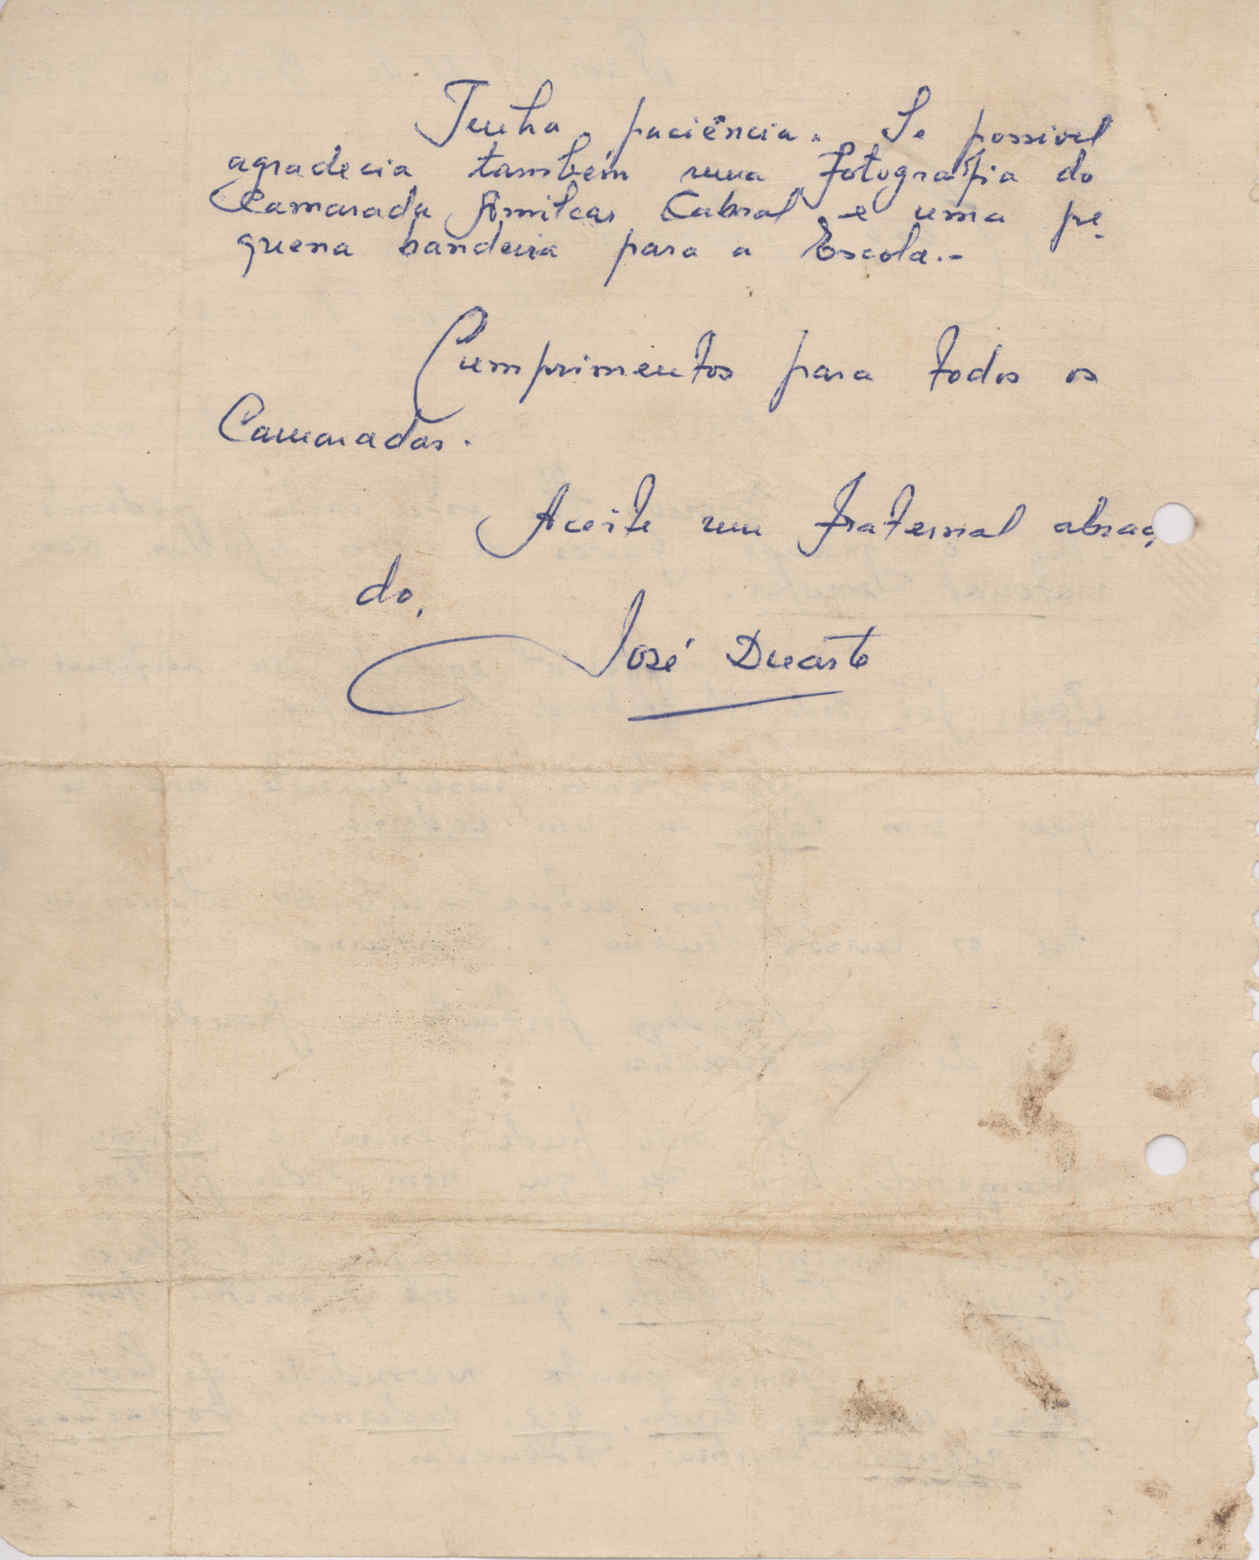 Tenha paciência. Se possivel
agradecia também uma fotografia do
Camarada Amilcar Cabral e uma pe-
quena bandeira para a Escola.-
Cumprimentos para todos os
Camaradas.
Aceite um fraternal abraç
do,
José Duarte